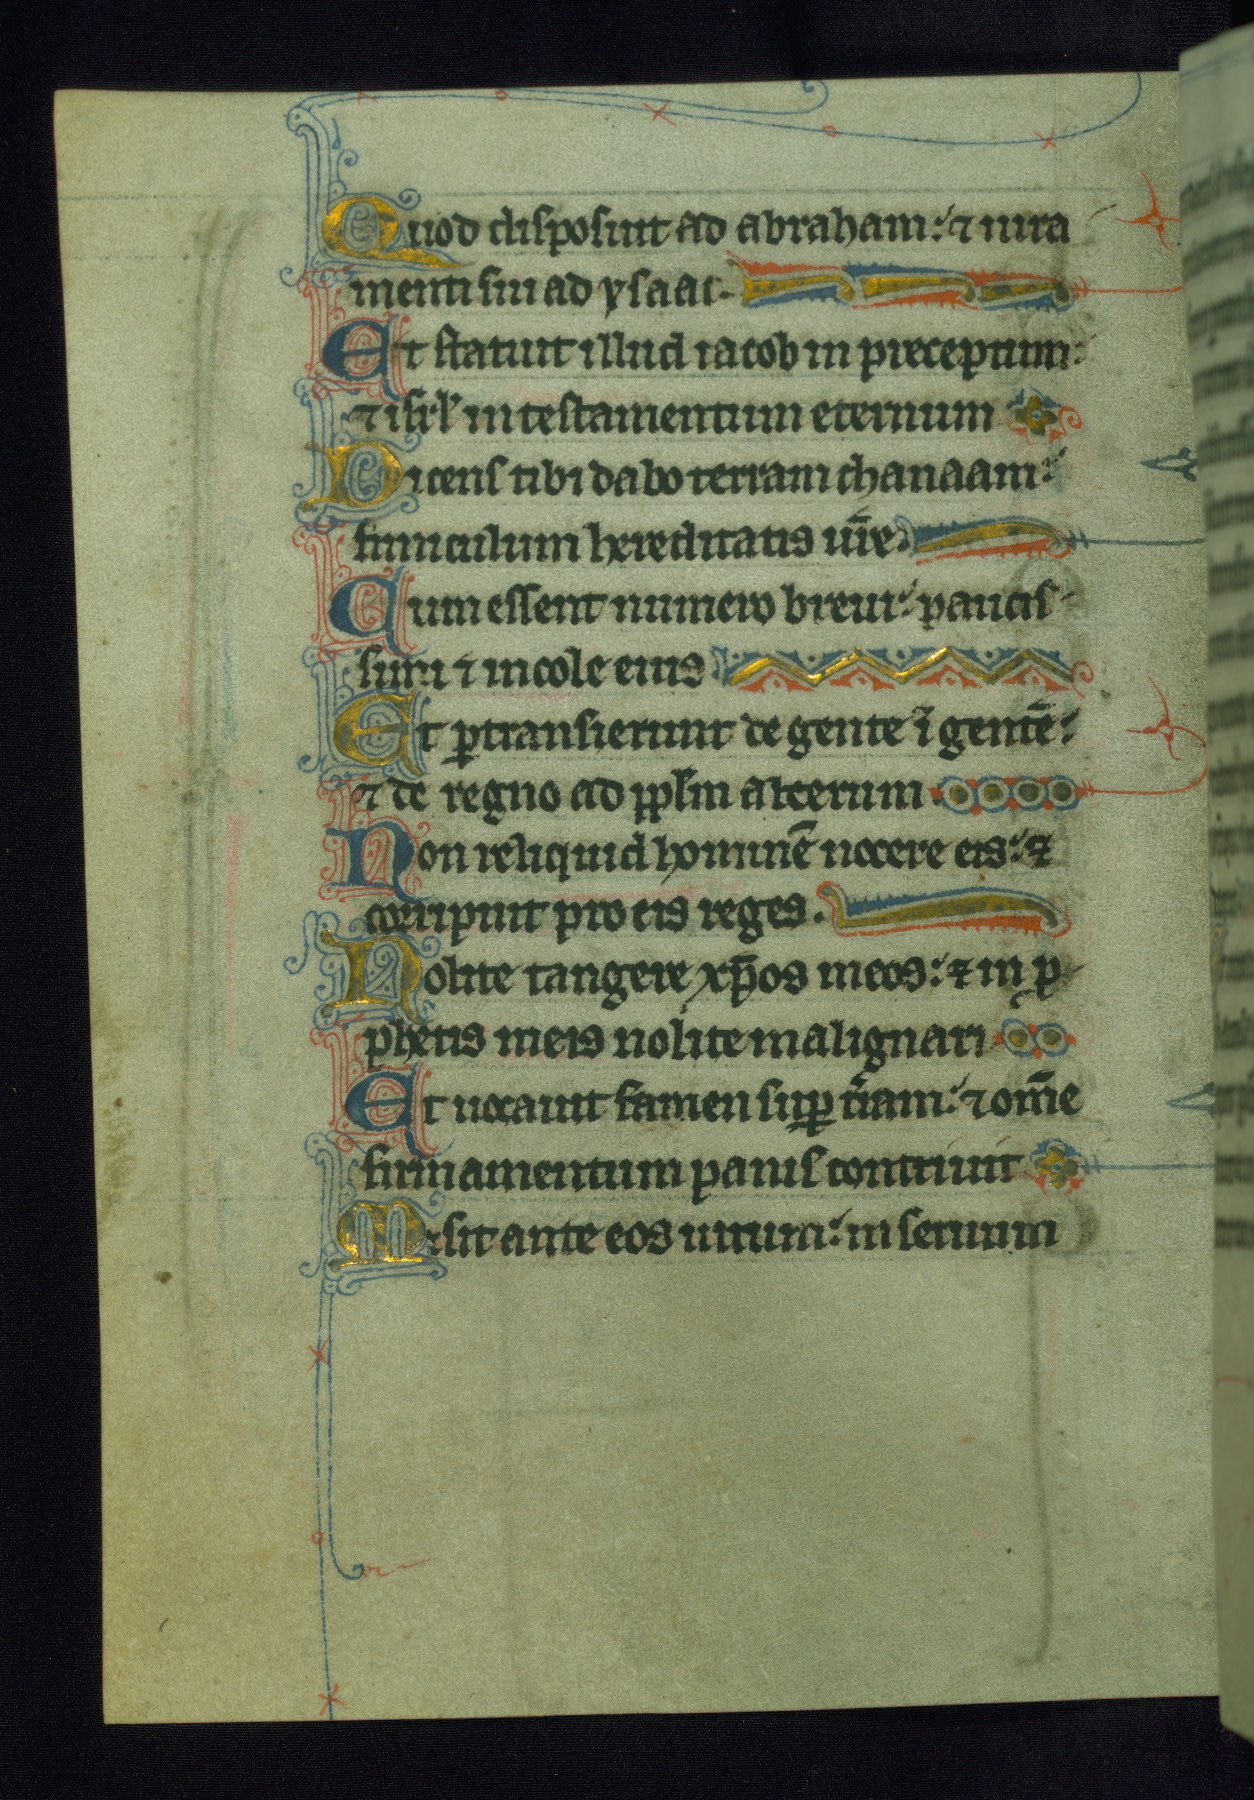 Quod disposuit ad abraham: ⁊ iura
menti sui ad ysaac.
Et statuit illud iacob in preceptum:
⁊ isrl̓ in testamentum eternum
Dicens tibi dabo terram chanaam:
funiculum hereditatis ur̃e.
Cum essent numero breui: paucis
simi ⁊ incole eius
Et ꝑtransierunt de gente ĩ gentẽ:
⁊ de regno ad pp̱l̓m alterum
Non reliquid hominẽ nocere eis: ⁊
coripuit pro eis reges.
Nolite tangere xp̃os meos: ⁊ in ꝓ
phetis meis nolite malignari
Et uocauit famen suꝑ tr̃am: ⁊ om̃e
firmamentum panis contriuit
Misit ante eos uirum: in seruum